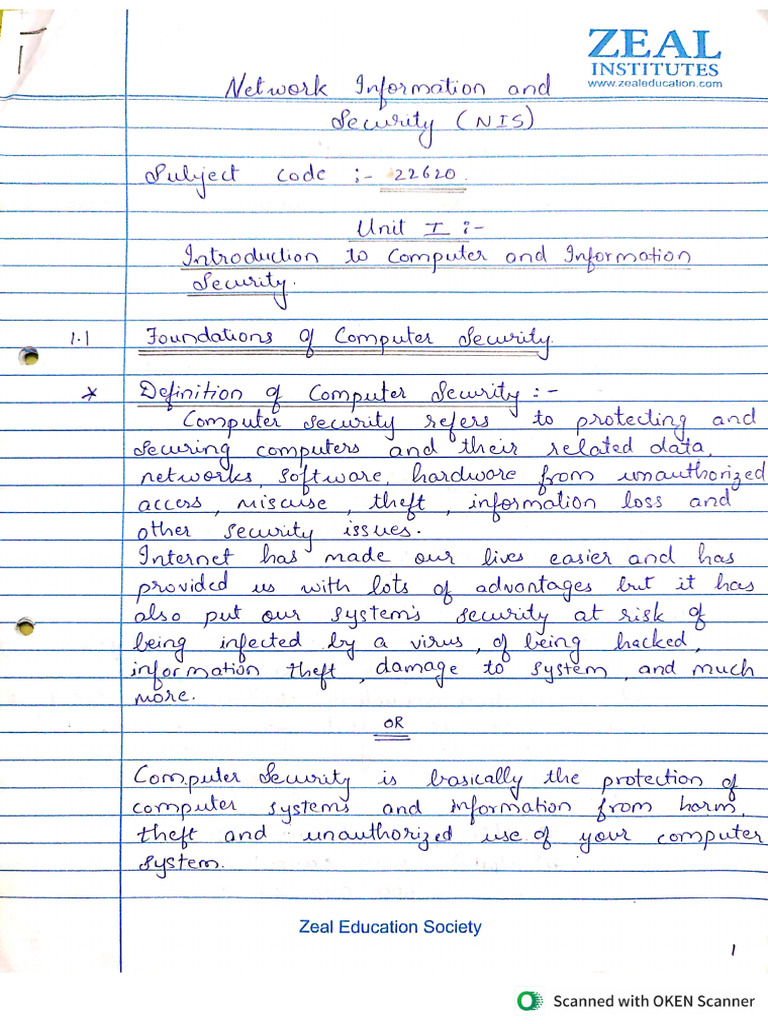 ZEAL
INSTITUTES
www.zealeducation.com
Network Information and
Security (NIS)
Subject code :- 22620.
Unit I :-
Introduction to Computer and Information
Security.
1.1 Foundations of Computer Security.
* Definition of Computer Security :-
Computer security refers to protecting and
securing computers and their related data,
networks, software, hardware from unauthorized
access, misuse, theft, information loss and
other security issues.
Internet has made our lives easier and has
provided us with lots of advantages but it has
also put our system's security at risk of
being infected by a virus, of being hacked,
information theft, damage to system, and much
more.
OR
Computer Security is basically the protection of
computer systems and information from harm,
theft and unauthorized use of your computer
system.
Zeal Education Society
1
Scanned with OKEN Scanner